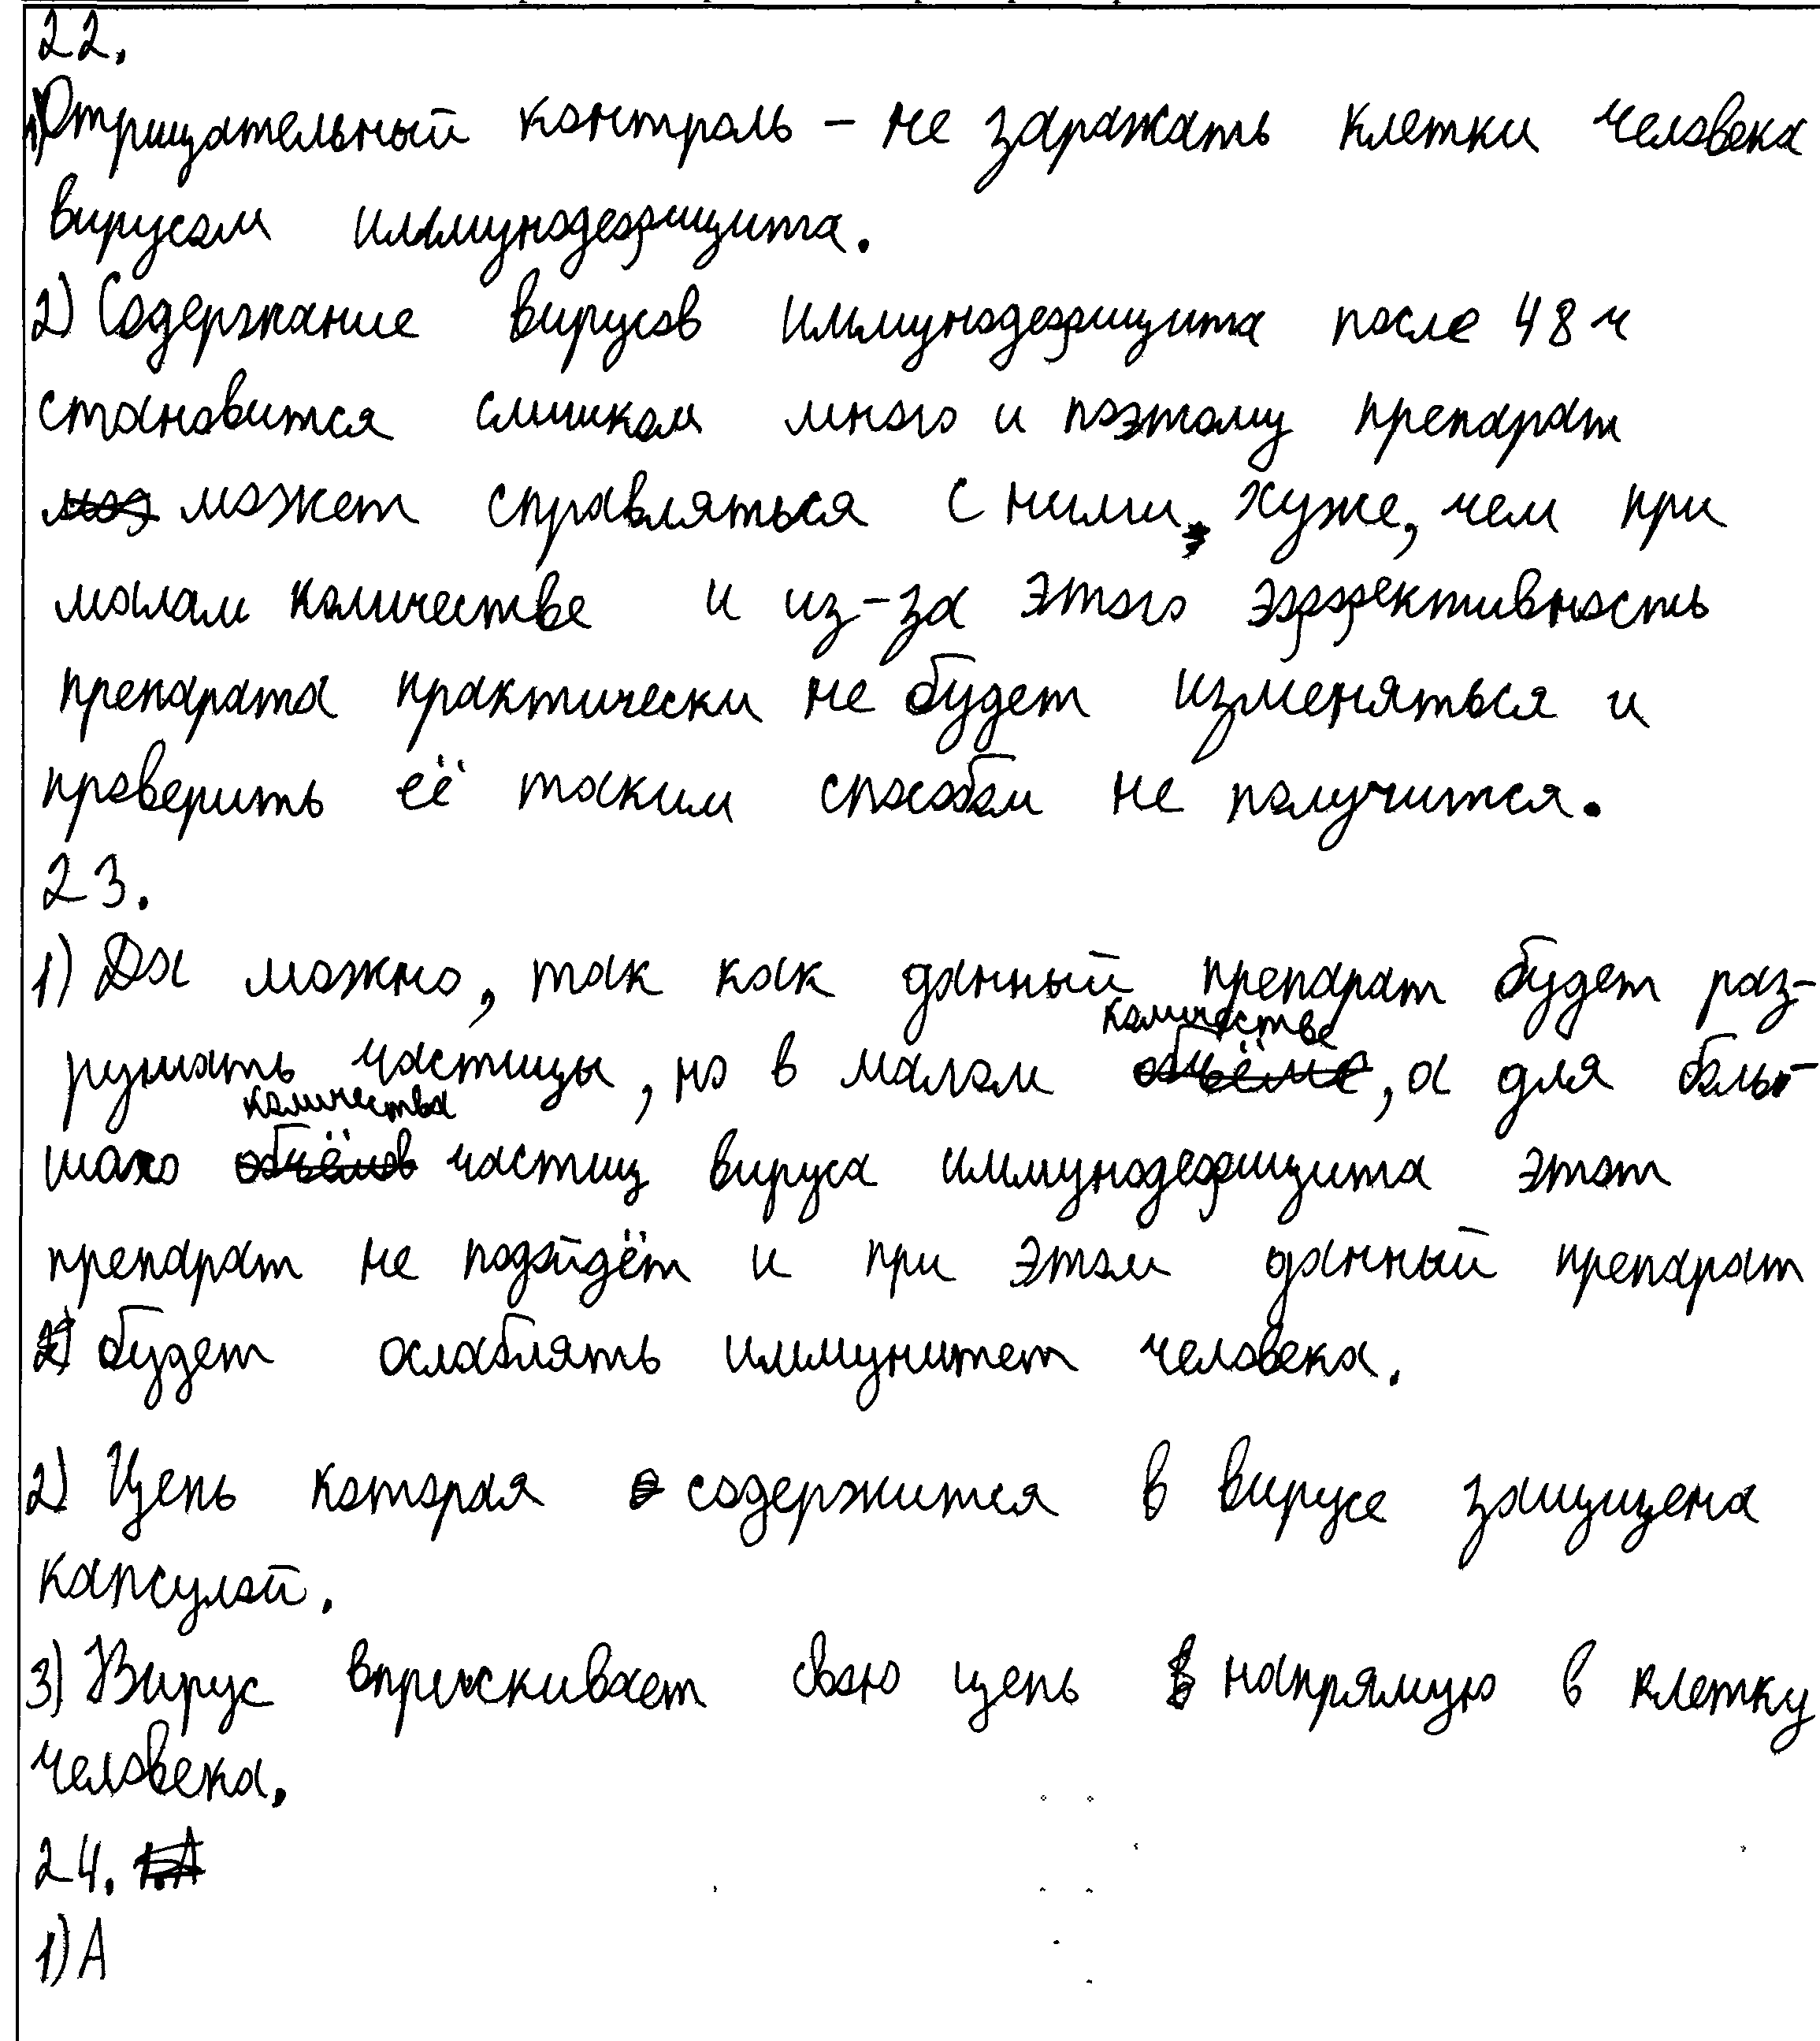 22.
1) Отрицательный контроль – не заражать клетки человека
вирусом иммунодефицита.
2) Содержание вирусов иммунодефицита после 48 ч
становится слишком много и поэтому препарат
может справляться с ними хуже, чем при
малом количестве и из-за этого эффективность
препарата практически не будет изменяться и
проверить её таким способом не получится.
23.
1) Да можно, так как данный препарат будет раз-
рушать частицы, но в малом количестве, а для боль-
шого количества частиц вируса иммунодефицита этот
препарат не подойдёт и при этом данный препарат
будет ослаблять иммунитет человека.
2) Цепь которая содержится в вирусе защищена
капсулой.
3) Вирус впрыскивает свою цепь напрямую в клетку
человека.
24.
1) А